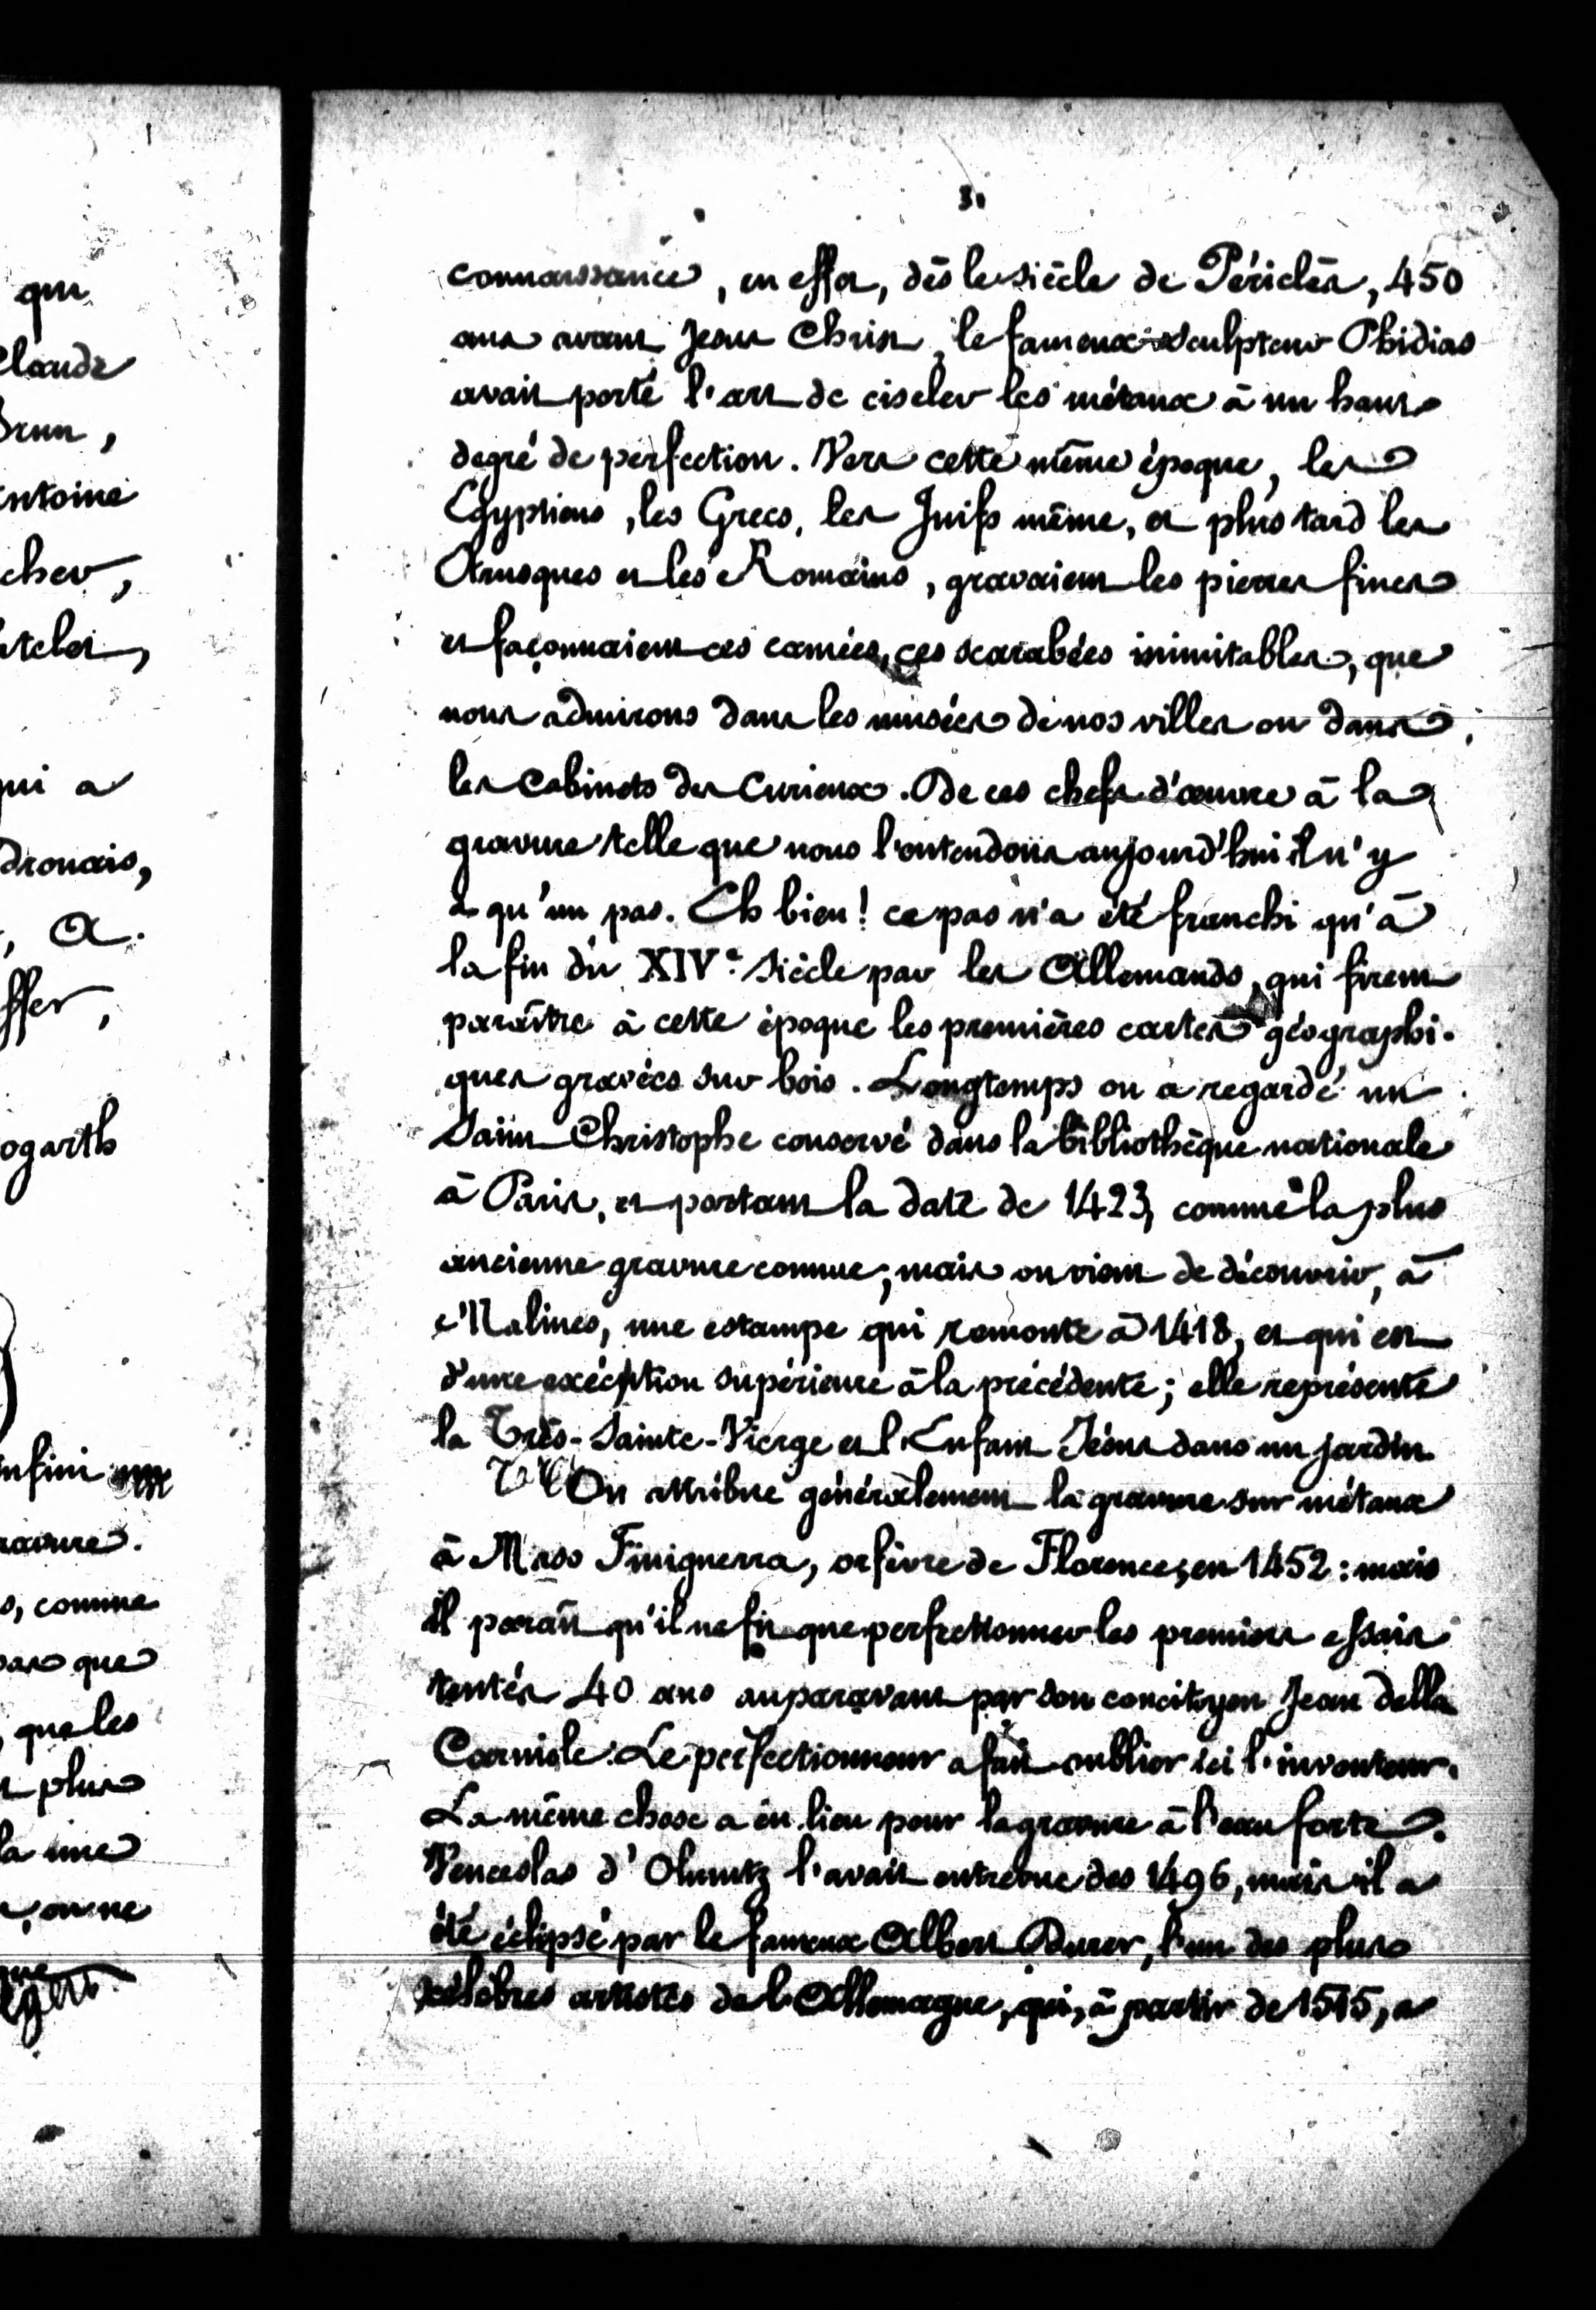 qui
Claude
Brun,
Antoine
cher,
atelet,
qui a
Drouais,
, A.
ffer,
ogarth
infini
ravure.
s, comme
pas que
, que les
t plus
la une
, on ne
3.
connaissance, en effet, dès le siècle de Périclès, 450
ans avant Jésus Christ, le fameux sculpteur Phidias
avait porté l'art de ciseler les métaux à un haut
degré de perfection. Vers cette même époque, les
Egyptiens, les Grecs, les Juifs même, et plus tard les
Etrusques et les Romains, gravaient les pierres fines
et façonnaient ces camées, ces scarabées inimitables, que
nous admirons dans les musées de nos villes ou dans
les Cabinets des Curieux. De ces chefs d'œuvre à la
gravure telle que nous l'entendons aujourd'hui il n'y
a qu'un pas. Eh bien! ce pas n'a été franchi qu'à
la fin du XIVe Siècle par les Allemands, qui firent
paraître à cette époque les premières cartes géographi-
ques gravées sur bois. Longtemps on a regardé un
Saint Christophe conservé dans la bibliothèque nationale
à Paris, et portant la date de 1423, comme la plus
ancienne gravure connue; mais on vient de découvrir, à
Malines, une estampe qui remonte à 1418, et qui est
d'une exécution supérieure à la précédente; elle représente
la Très-Sainte-Vierge et l'Enfant Jésus dans un jardin.
On attribue généralement la gravure sur métaux
à Maso Finiguerra, orfèvre de Florence, en 1452: mais
il paraît qu'il ne fit que perfectionner les premiers essais
tentés 40 ans auparavant par son concitoyen Jean della
Corniole. Le perfectionneur a fait oublier ici l'inventeur.
La même chose a eu lieu pour la gravure à l'eau forte.
Venceslas d'Olmutz l'avait entrevue dès 1496, mais il a
été éclipsé par le fameux Albert Durer, l'un des plus
célèbres artistes de l'Allemagne, qui, à partir de 1515, a